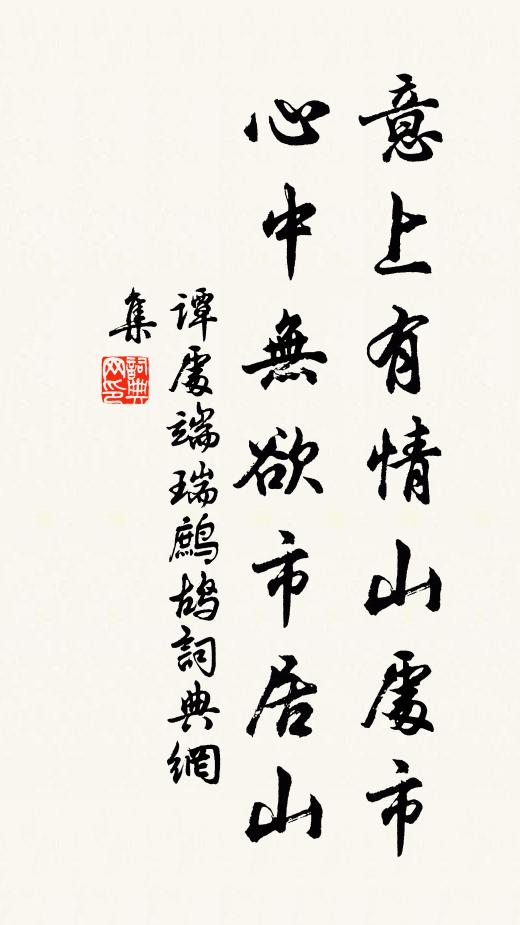 意上有情山處市
心中無欲市居山
譚處端瑞鷓鴣詞典網
集
詞典網印